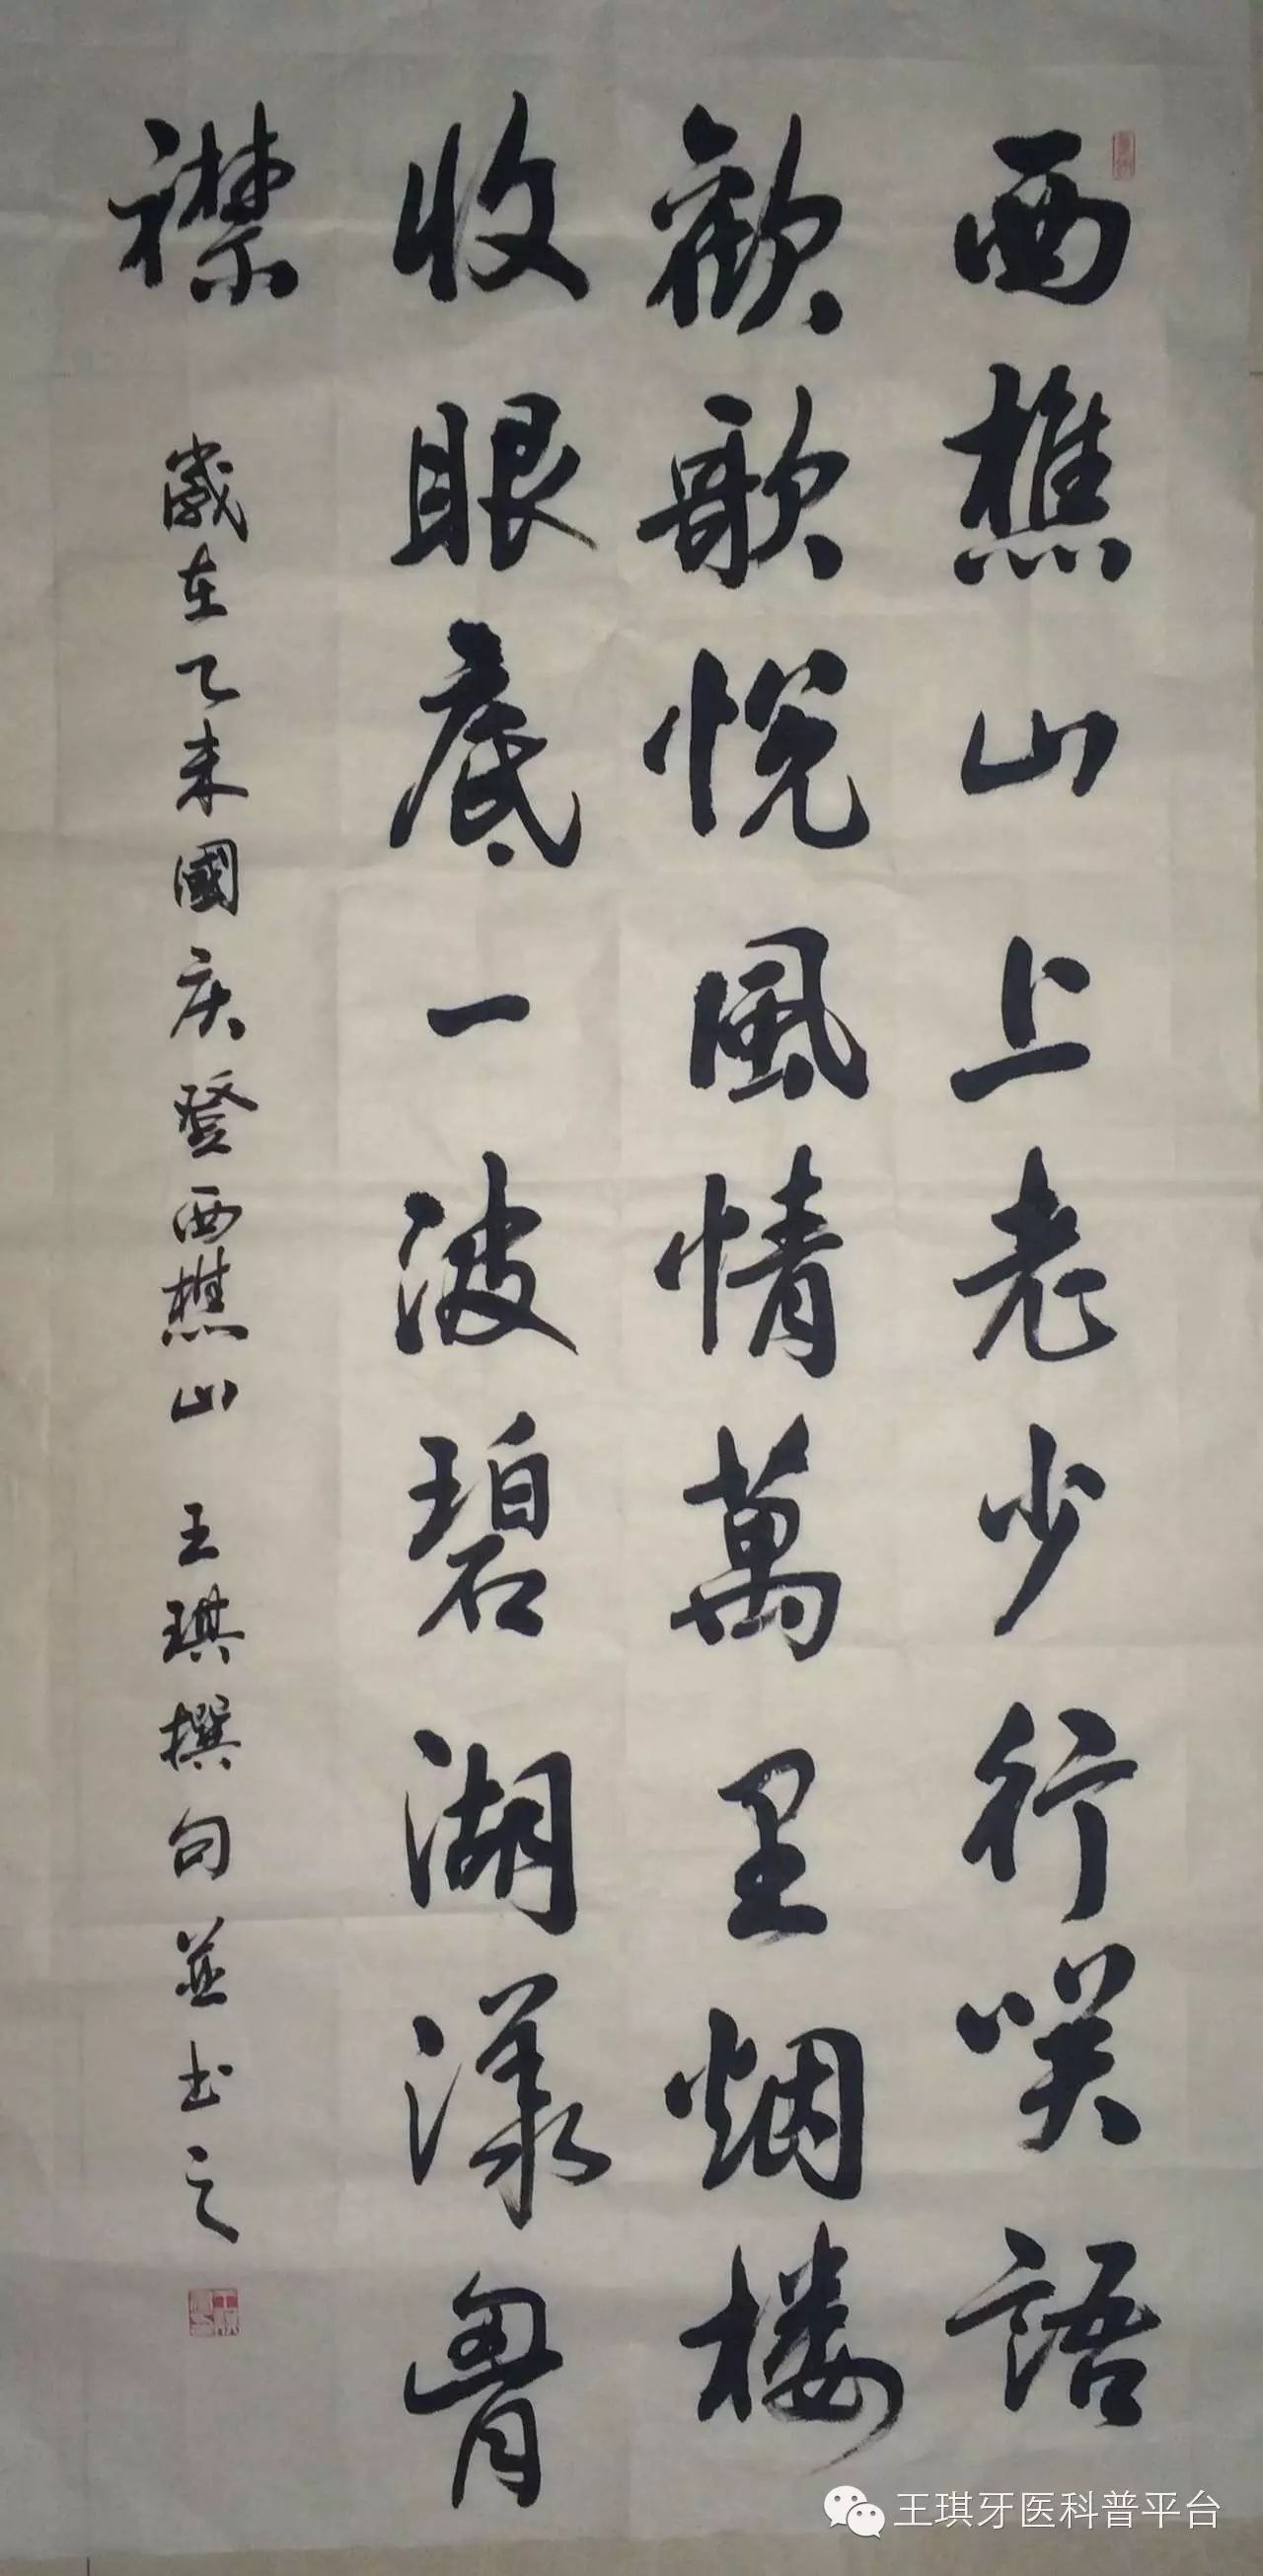 西樵山上老少行笑語
歡歌悦風情萬里烟楼
收眼底一波碧湖漾胷
襟
歲在乙未國庆登西樵山 王琪撰句並书之
王琪牙医科普平台